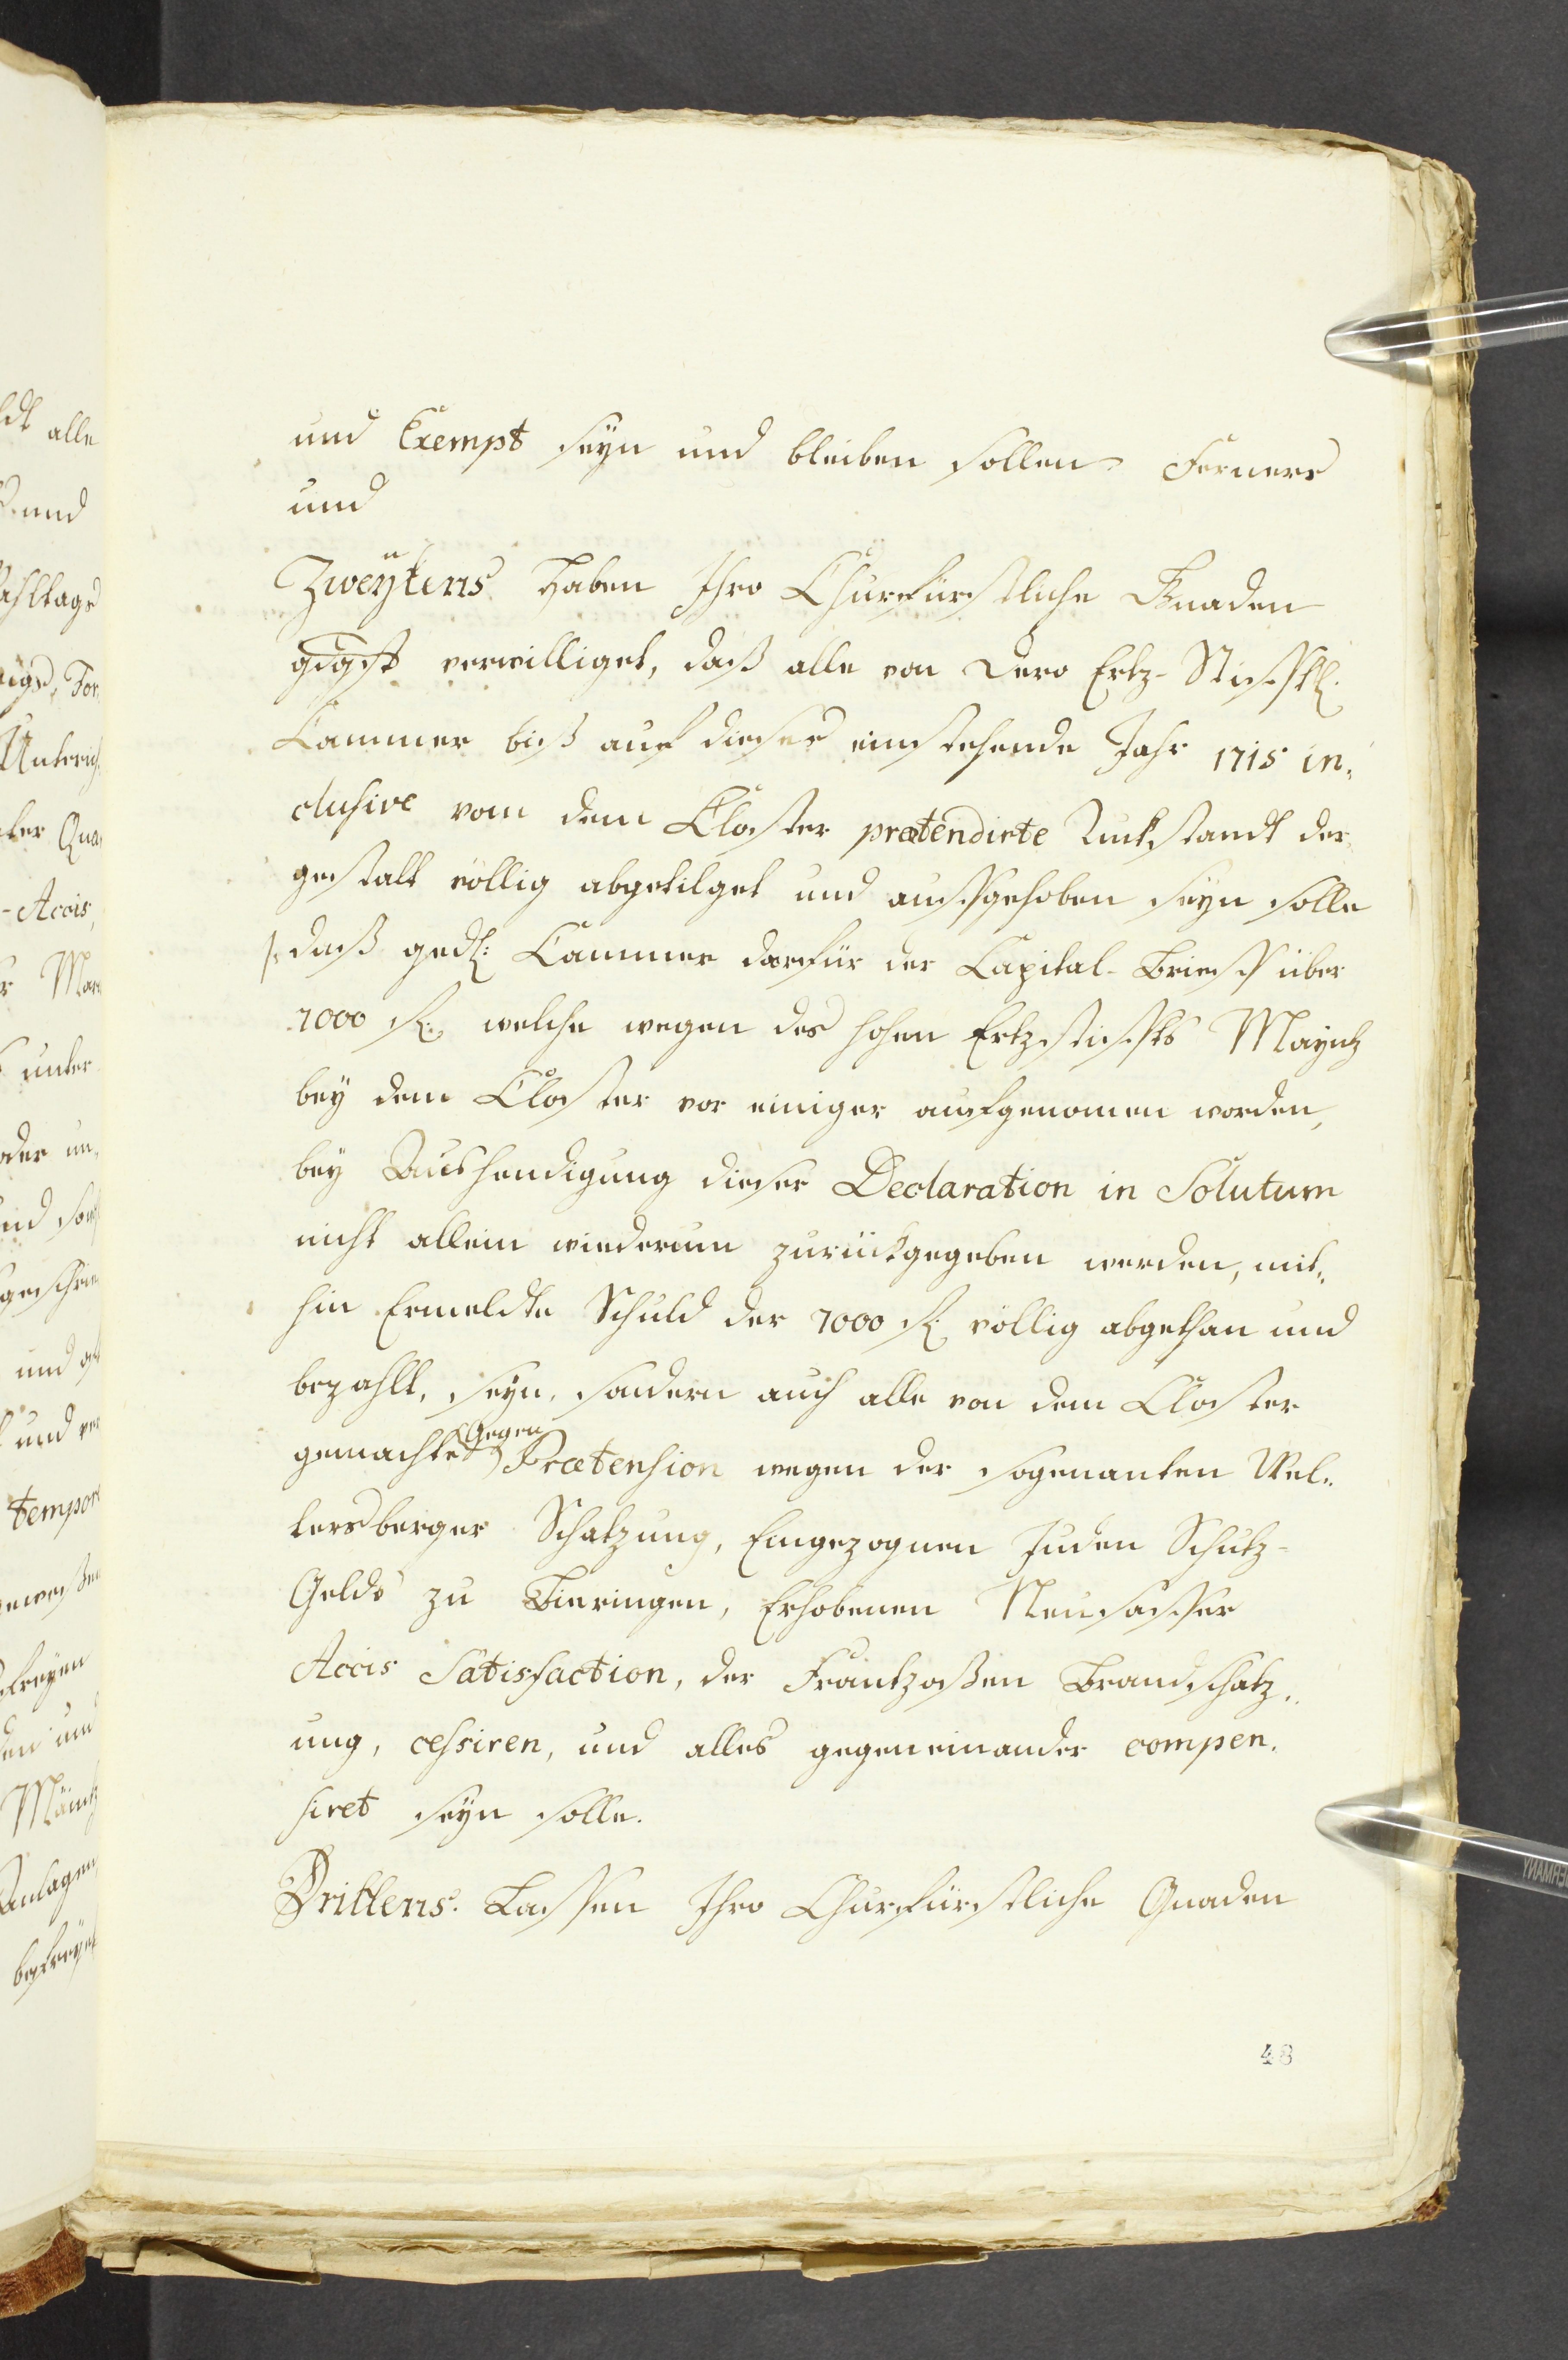 und Exempt seyn und bleiben sollen Ferners
und
Zweytens haben Ihro Churfürstliche Gnaden
gdgst verwilliget, daß alle von Dero Ertz-Stifftl.
Cammer biß auf dieses einstehende Jahr 1715 in,
clusive von dem Closter prætendirte Ruckstandt der,
gestalt völlig abgetilget und auffgehoben seyn solle
daß gedl: Cammer darfür der Capital-Brieff über
1000 fl: welche wegen des hohen Ertzstiffts Mayntz
bey dem Closter vor einiger aufgenomen worden,
bey Aushendigung dieser Declaration in Solutum
nicht allein wiederum zurückgegeben werden, mit,,
hin Ermeldte Schuld der 1000 fl: völlig abgethan und
bezahlt, seyn, sondern auch alle von dem Closter
gemachte Gegen Prætension wegen der sogenanten Wel,,
tersberger Schatzung, Eingezognen Juden Schutz-
Gelds zu Bieringen, Erhobenen Neusasser
Accis Satisfaction, der Frantzoßen Brandschatz,,
ung, cessiren, und alles gegeneinander compen,
siret seyn solle.
Drittens. Lassen Ihro Churfürstliche Gnaden
48
alle
und
Accis,
unter
oder un,
und
tempor
Anlagen